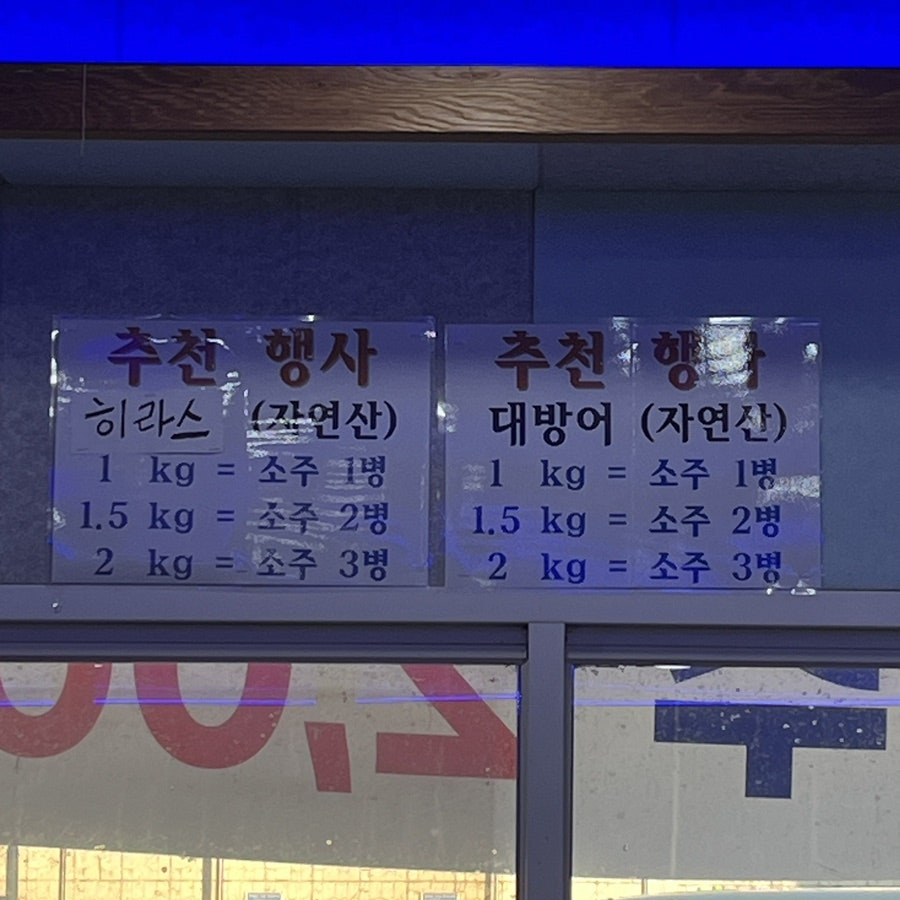 추천 행사
히라스 (자연산)
1 kg = 소주 1병
1.5 kg = 소주 2병
2 kg = 소주 3병
추천 행사
대방어 (자연산)
1 kg = 소주 1병
1.5 kg = 소주 2병
2 kg = 소주 3병